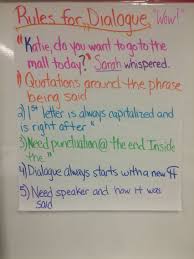 Rules for Dialogue "Wow!"
"Katie, do you want to go to the
mall today?" Sarah whispered.
1) Quotations around the phrase
being said
2) 1st letter is always capitalized and
is right after "
3) Need punctuation @ the end. Inside
the "
4) Dialogue always starts with a new ¶
5) Need speaker and how it was
said